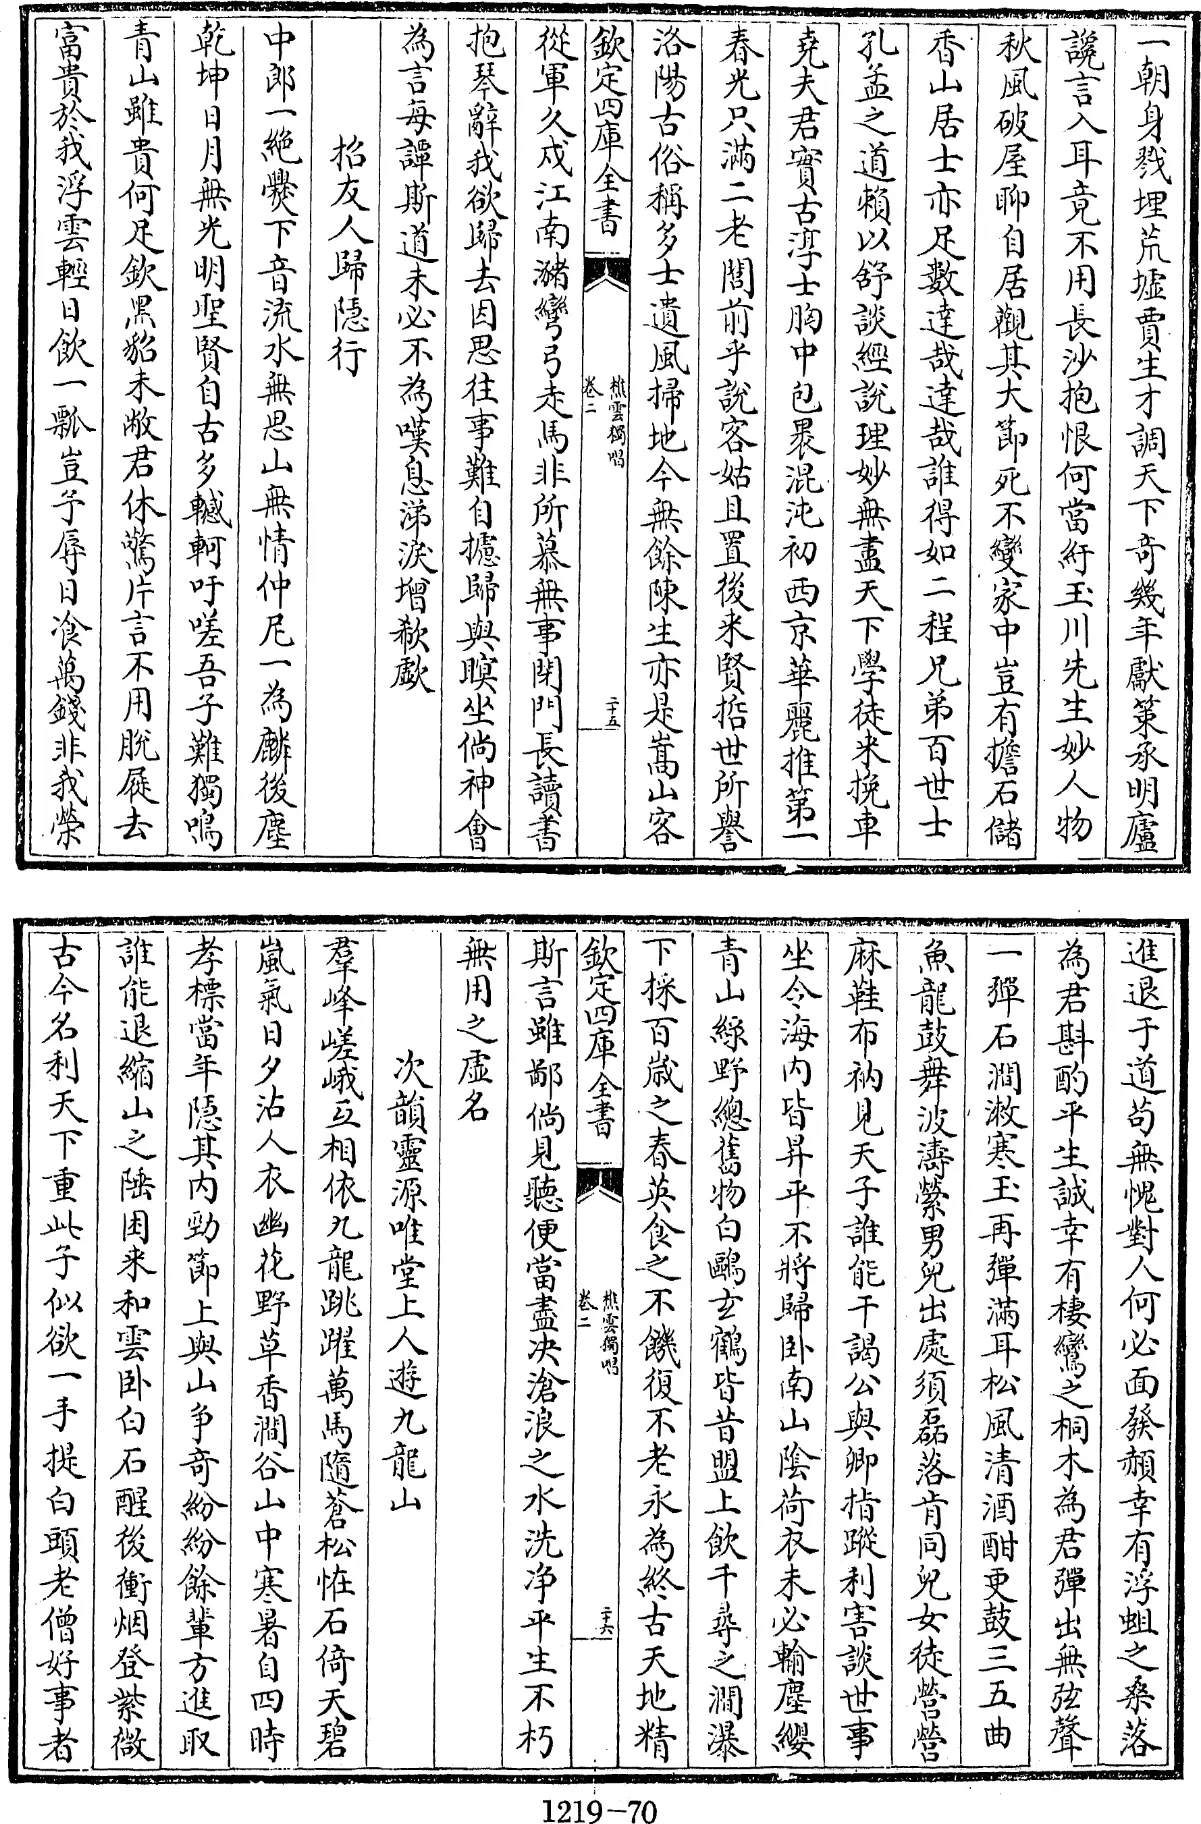 一朝身戮埋荒墟賈生才調天下奇幾年獻策承明廬
讒言入耳竟不用長沙抱恨何當紓玉川先生妙人物
秋風破屋聊自居觀其大節死不變家中豈有擔石儲
香山居士亦足數達哉達哉誰得如二程兄弟百世士
孔孟之道賴以舒談經說理妙無盡天下學徒来挽車
堯夫君實古淳士胸中包褁混沌初西京華麗推第一
春光只滿二老閭前乎說客姑且置後来賢哲世所譽
洛陽古俗稱多士遺風掃地今無餘陳生亦是嵩山客
欽定四庫全書
樵雲獨唱
卷二
二十五
從軍久戍江南瀦彎弓走馬非所慕無事閉門長讀書
抱琴辭我欲歸去因思往事難自攄歸與瞑坐倘神會
為言每譚斯道未必不為嘆息涕淚增欷歔
招友人歸隱行
中郎一絶爨下音流水無思山無情仲尼一為麟後塵
乾坤日月無光明聖賢自古多轗軻吁嗟吾子難獨鳴
青山雖貴何足欽黑貂未敝君休驚片言不用脫屣去
富貴於我浮雲輕日飲一瓢豈予辱日飡萬錢非我榮
進退于道苟無愧對人何必面發赬幸有浮蛆之桑落
為君斟酌平生誠幸有棲鸞之桐木為君彈出無弦聲
一彈石澗漱寒玉再彈滿耳松風清酒酣更鼓三五曲
魚龍鼓舞波濤縈男兒出處須磊落肯同兒女徒營營
麻鞋布衲見天子誰能干謁公與卿指蹤利害談世事
坐令海内皆昇平不將歸卧南山陰荷衣未必輸塵纓
青山綠野總舊物白鷗玄鶴皆昔盟上飲千尋之澗瀑
下採百嵗之春英食之不饑復不老永為終古天地精
欽定四庫全書
樵雲獨唱
卷二
二十六
斯言雖鄙倘見聽便當盡决滄浪之水洗净平生不朽
無用之虛名
次韻靈源唯堂上人遊九龍山
羣峰嵯峨互相依九龍跳躍萬馬隨蒼松恠石倚天碧
嵐氣日夕沾人衣幽花野草香澗谷山中寒暑自四時
孝標當年隱其内勁節上與山争奇紛紛餘輩方進取
誰能退縮山之陲困来和雲卧白石醒後衝烟登紫微
古今名利天下重此子似欲一手提白頭老僧好事者
1219-70